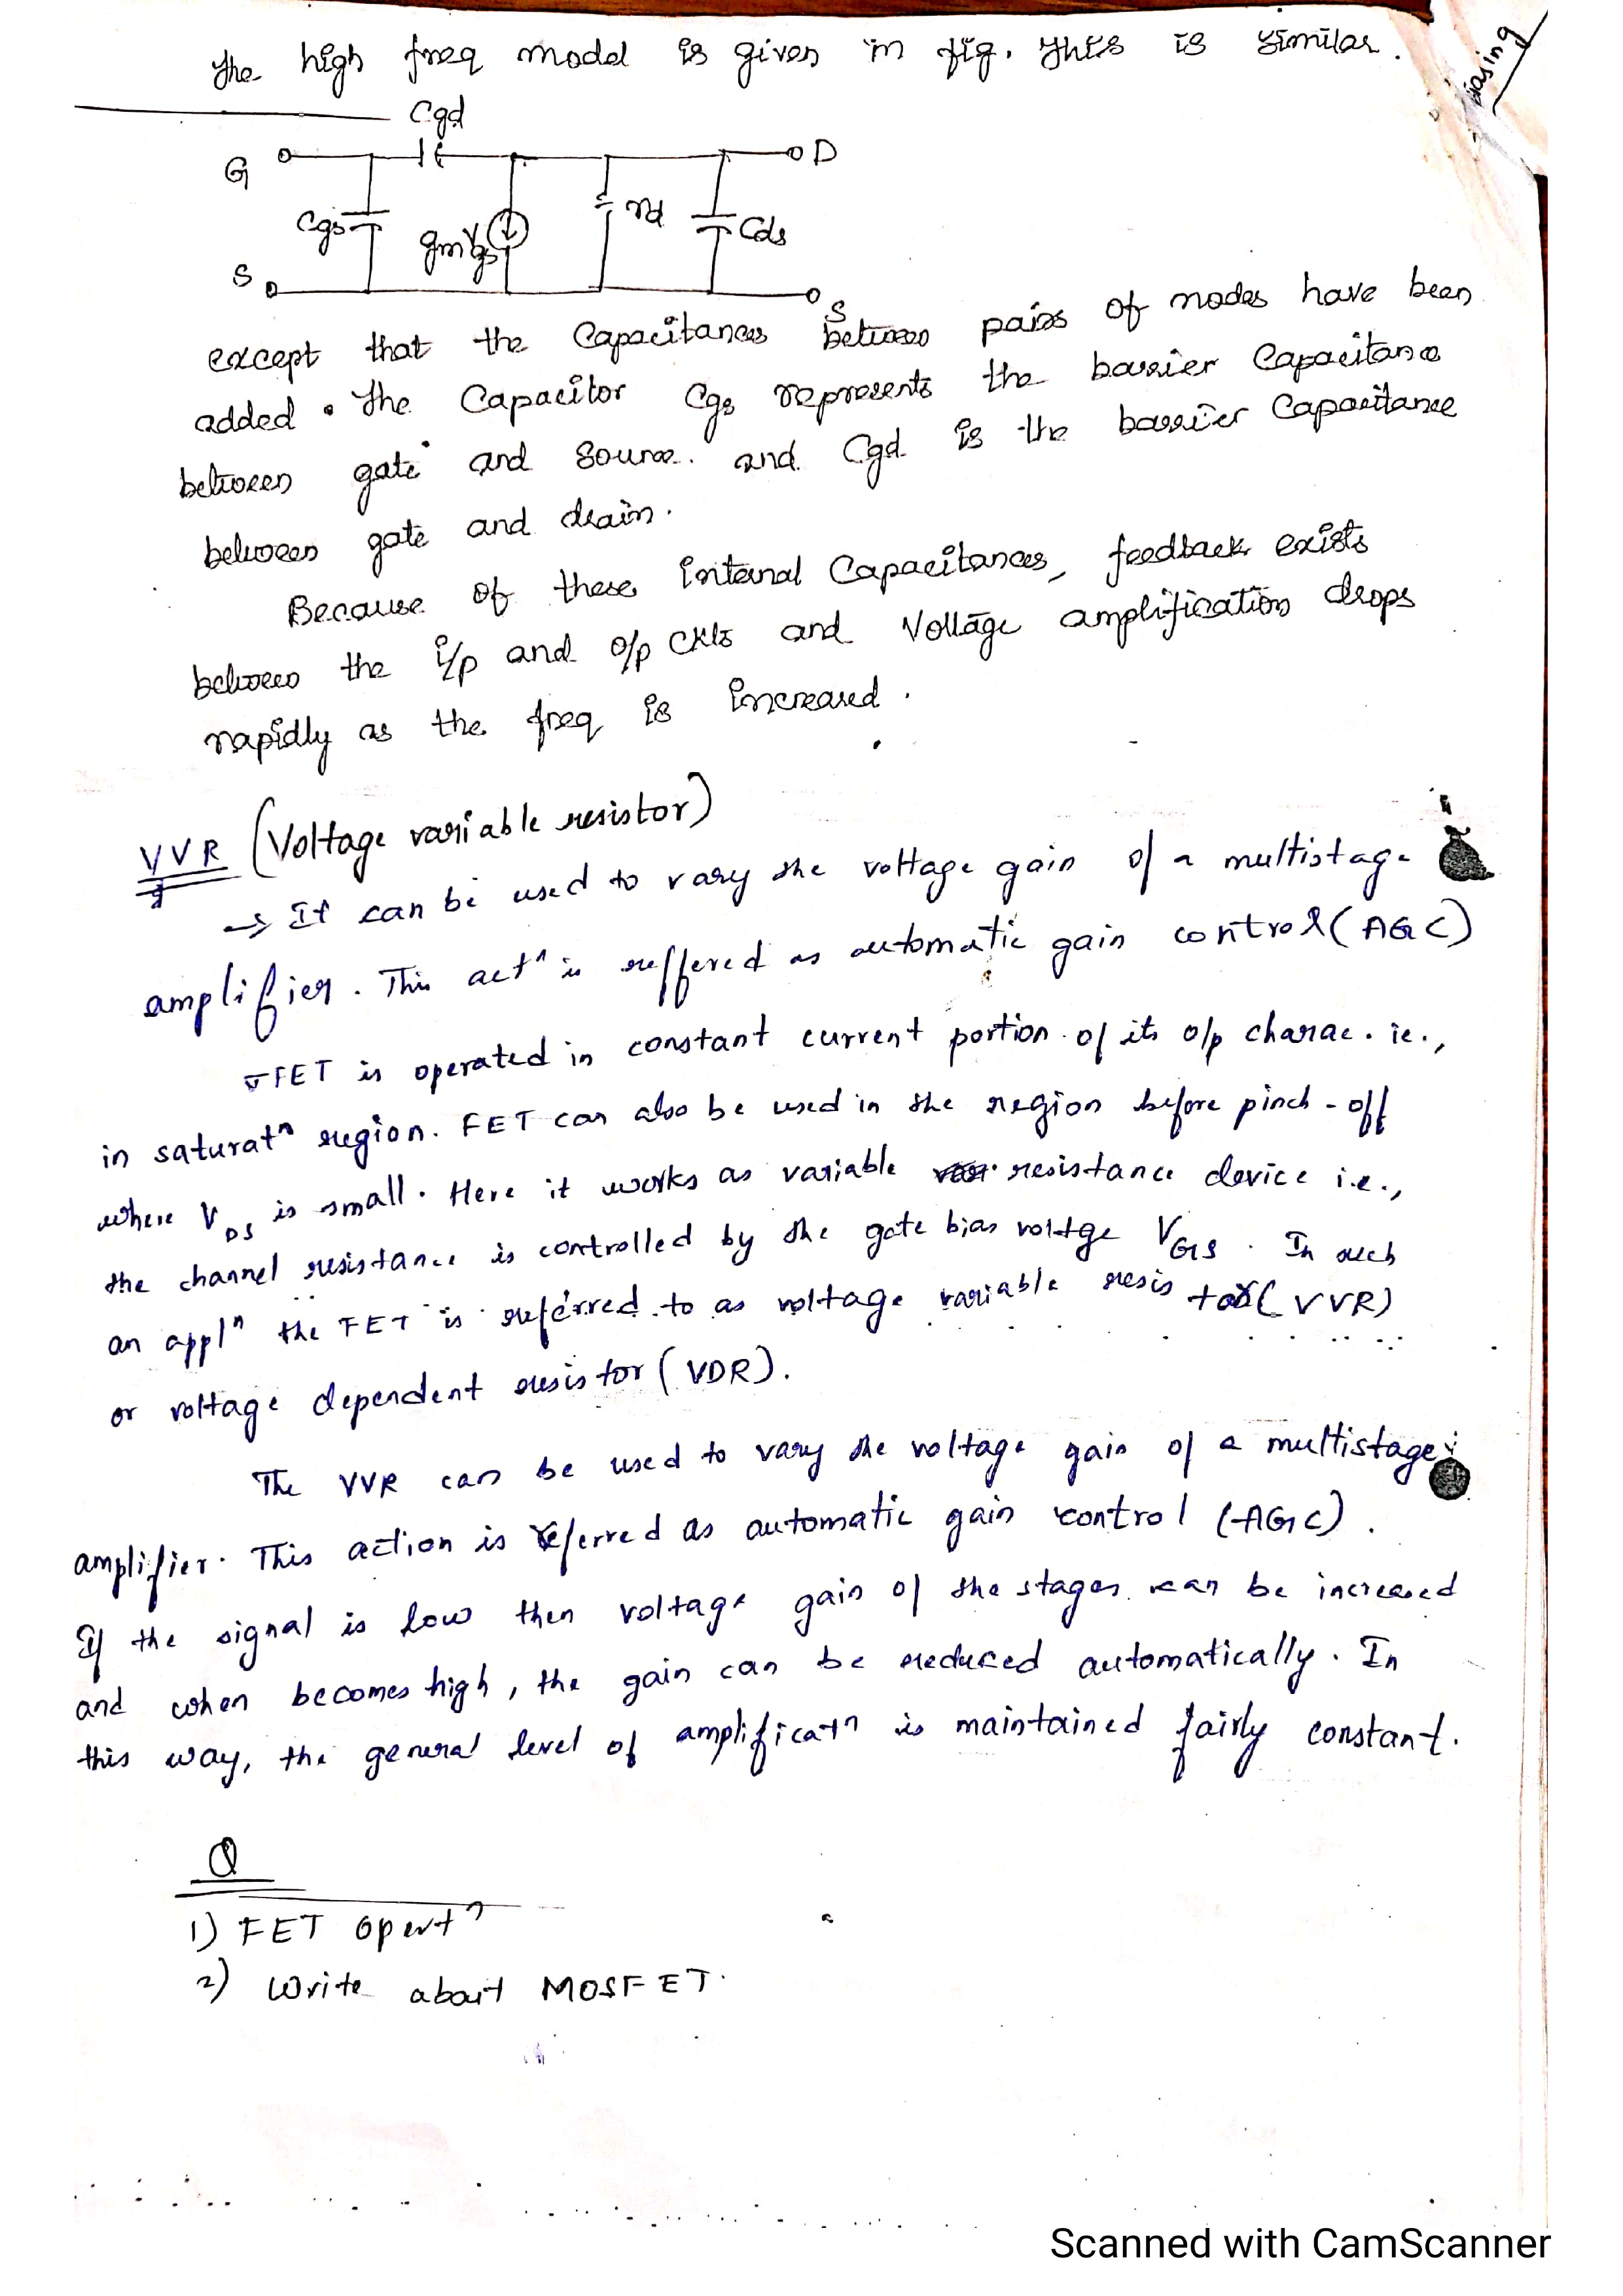 The high freq model is given in fig. This is similar.
iasing
Cgd
G
D
Cgs
gmVgs
rd
Cds
S
S
except that the Capacitances between pairs of nodes have been
added. The Capacitor Cgs represents the barrier Capacitance
between gate and source. and Cgd is the barrier Capacitance
between gate and drain.
Because of these internal Capacitances, feedback exists
between the i/p and o/p ckts and Voltage amplification drops
rapidly as the freq is increased.
VVR (Voltage variable resistor)
→ It can be used to vary the voltage gain of a multistage
amplifier. This actn is reffered as automatic gain control (AGC)
FET is operated in constant current portion of its o/p charac. ie.,
in saturatn region. FET can also be used in the region before pinch-off
where VDS is small. Here it works as variable resistance device i.e.,
the channel resistance is controlled by the gate bias voltge VGS. In such
an appln the FET is referred to as voltage variable resistor (VVR)
or voltage dependent resistor (VDR).
The VVR can be used to vary the voltage gain of a multistage
amplifier. This action is referred as automatic gain control (AGC).
If the signal is low then voltage gain of the stages can be increased
and when becomes high, the gain can be reduced automatically. In
this way, the general level of amplificatn is maintained fairly constant.
Q
1) FET opertn
2) Write about MOSFET.
Scanned with CamScanner